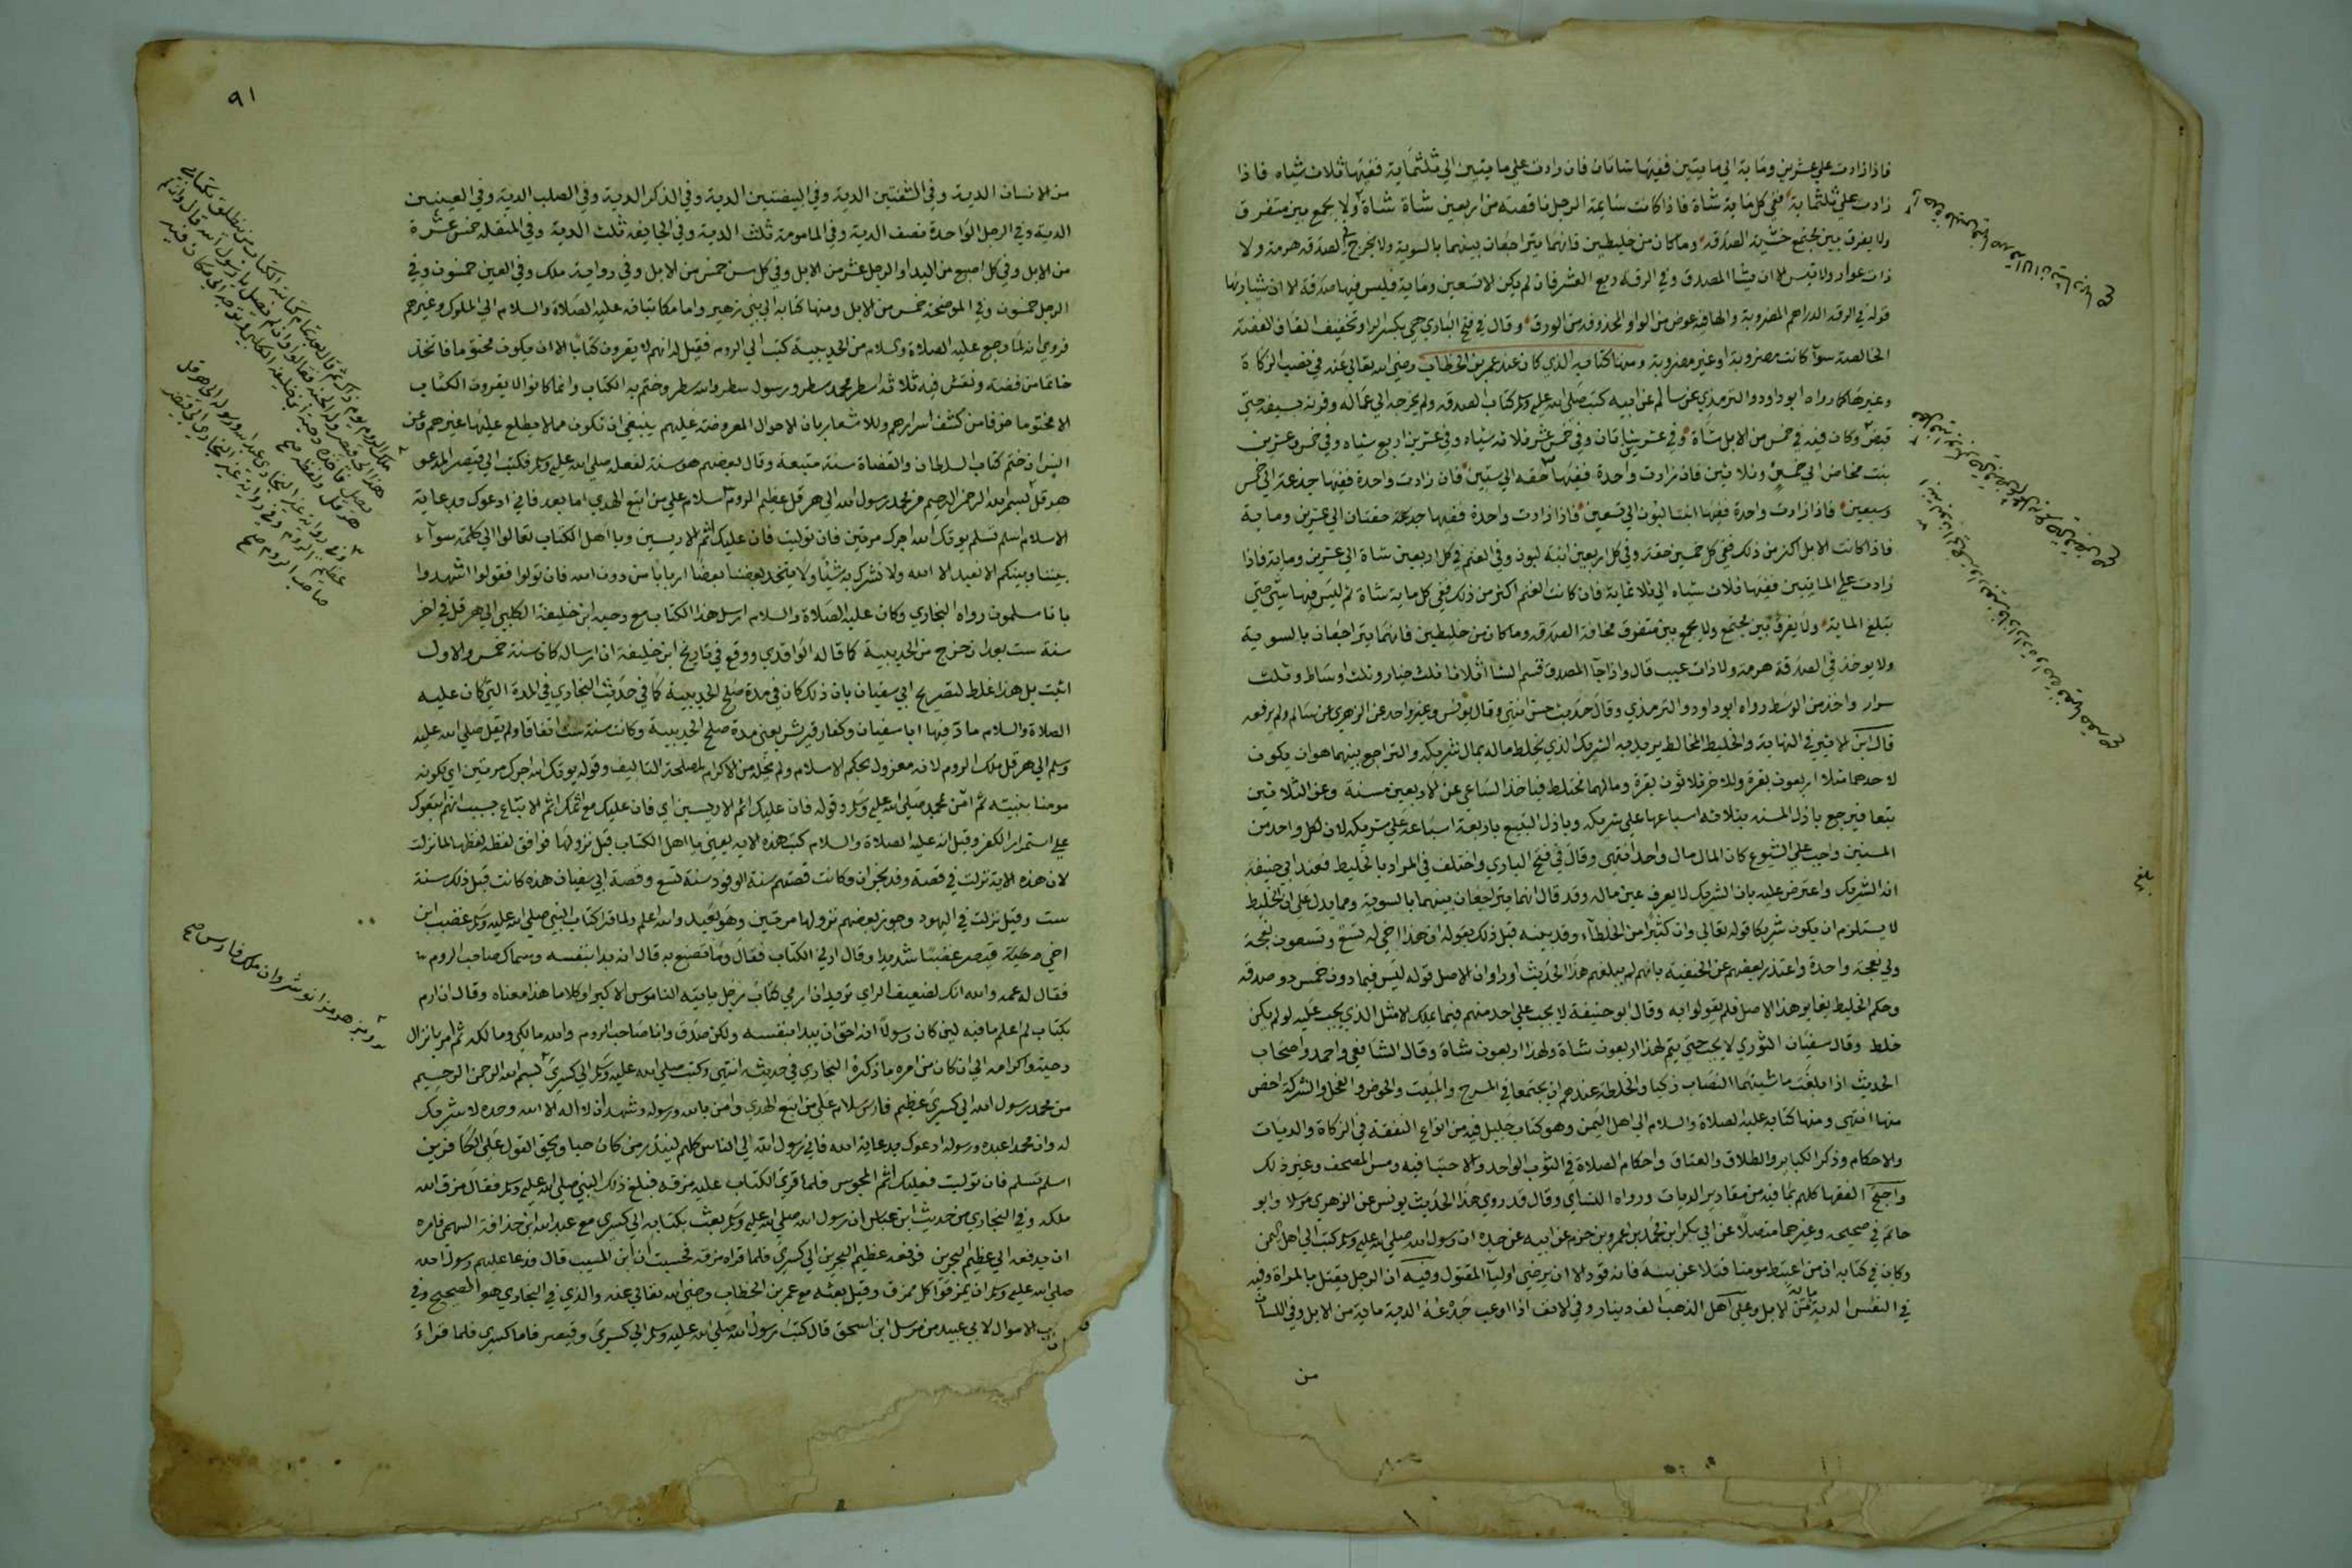 فاذا زادت علي عشرين وماية الي مايتين ففيها شاتان فان زادت علي مايتين الي ثلثماية ففيها ثلاث شياه فاذا
زادت علي ثلثماية ففي كل ماية شاة فاذا كانت سايمة الرجل ناقصة من اربعين شاة شاة ولا يجمع بين متفرق
ولا يفرق بين مجتمع خشية الصدقة وما كان من خليطين فانهما يتراجعان بينهما بالسوية ولا يخرج في الصدقة هرمة ولا
ذات عوار ولا تيس الا ان يشا المصدق وفي الرقة ربع العشر فان لم يكن الا تسعين وماية فليس فيها صدقة الا ان يشا ربها
قوله في الرقة الدراهم المضروبة والها فيه عوض من الواو المحذوفة من الورق وقال في فتح الباري هي بكسر الرا وتخفيف القاف الفضة
الخالصة سوآ كانت مضروبة او غير مضروبة ومنها كتابه الذي كان عند عمر بن الخطاب رضي الله تعالي عنه في نصب الزكاة
وغيرها كما رواه ابو داود والترمذي عن سالم عن ابيه كتب صلي الله عليه وسلم كتاب الصدقة ولم يخرجه الي عماله وقرنه بسيفه حتي
قبض وكان فيه في خمس من الابل شاة وفي عشر شاتان وفي خمس عشر ثلاثة شياه وفي عشرين اربع شياه وفي خمس وعشرين
بنت مخاض الي خمس وثلاثين فان زادت واحدة ففيها حقه الي ستين فان زادت واحدة ففيها جدعة الي خمس
وسبعين فاذا زادت واحدة ففيها ابنتا لبون الي تسعين فاذا زادت واحدة ففيها حقتان الي عشرين وماية
فاذا كانت الابل اكثر من ذلك ففي كل خمسين حقة وفي كل اربعين ابنة لبون وفي الغنم في كل اربعين شاة الي عشرين وماية فاذا
زادت علي المايتين ففيها ثلاث شياه الي ثلاثماية فان كانت الغنم اكثر من ذلك ففي كل ماية شاة ثم ليس فيها شي حتي
تبلغ الماية ولا يفرق بين مجتمع ولا يجمع بين متفرق مخافة الصدقة وما كان من خليطين فانهما يتراجعان بالسوية
ولا يوخذ في الصدقة هرمة ولا ذات عيب قال واذا جآ المصدق قسم الشا اثلاثا ثلث خيار وثلث اوساط وثلث
سرار واخذ من الوسط رواه ابو داود والترمذي وقال حديث حسن انتهي وقال يونس وغير واحد عن الزهري عن سالم ولم يرفعه
قال ابن الاثير في النهاية والخليط المخالط يريد به الشريك الذي يخلط ماله بمال شريكه والتراجع بينهما هو ان يكون
لاحدهما مثلا اربعون بقرة وللاخر ثلاثون بقرة ومالهما مختلط فياخذ الساعي عن الاربعين مسنة وعن الثلاثين
تبيعا فيرجع باذل المسنة بثلاثة اسباعها علي شريكه وباذل التبيع باربعة اسباعه علي شريكه لان كل واحد من
السنين واجب علي الشيوع كان المال مال واحد انتهي وقال في فتح الباري واختلف في المراد بالخليط فعند ابي حنيفة
انه الشريك واعترض عليه بان الشريك لا يعرف عين ماله وقد قال انهما يتراجعان بينهما بالسوية ومما يدل علي ان الخليط
لا يستلزم ان يكون شريكا قوله تعالي وان كثيرا من الخلطآء وقد بينه قبل ذلك بقوله ان هذا اخي له تسع وتسعون نعجة
ولي نعجة واحدة واعتذر بعضهم عن الحنفية بانهم لم يبلغهم هذا الحديث او راوا ان الاصل قوله ليس فيما دون خمس ذود صدقة
وحكم الخليط يغاير هذا الاصل فلم يقولوا به وقال ابو حنيفة لا يجب علي احد منهم فيما يملك الا مثل الذي يجب عليه لو لم يكن
خلط وقال سفيان الثوري لا يجب حتي يتم لهذا اربعون شاة ولهذا اربعون شاة وقال الشافعي واحمد واصحاب
الحديث اذا بلغت ماشيتهما النصاب زكيا والخلطة عندهم ان يجتمعا في المسرح والمبيت والحوض والفحل والشركة اخص
منها انتهي ومنها كتابه عليه الصلاة والسلام الي اهل اليمن وهو كتاب جليل فيه من انواع الفقه في الزكاة والديات
والاحكام وذكر الكباير والطلاق والعتاق واحكام الصلاة في الثوب الواحد والاحتبا فيه ومس المصحف وغير ذلك
واحتج الفقها كلهم بما فيه من مقادير الديات ورواه النساي وقال قد روي هذا الحديث يونس عن الزهري مرسلا وابو
حاتم في صحيحه وغيرهما متصلا عن ابي بكر ابن محمد بن عمرو بن حزم عن ابيه عن جده ان رسول الله صلي الله عليه وسلم كتب الي اهل اليمن
وكان في كتابه ان من اعتبط مومنا قتلا عن بينة فانه قود الا ان يرضي اوليآ المقتول وفيه ان الرجل يقتل بالمراة وفيه
في النفس الدية ماية من الابل وعلي اهل الذهب الف دينار وفي الانف اذا اوعب جدعه الدية ماية من الابل وفي اللسان
من
٩١
من الانسان الدية وفي الشفتين الدية وفي البيضتين الدية وفي الذكر الدية وفي الصلب الدية وفي العينين
الدية وفي الرجل الواحدة نصف الدية وفي المامومة ثلث الدية وفي الجايفة ثلث الدية وفي المنقلة خمس عشرة
من الابل وفي كل اصبع من اليد او الرجل عشر من الابل وفي كل سن خمس من الابل وفي رواية ملك وفي العين خمسون وفي
الرجل خمسون وفي الموضحة خمس من الابل ومنها كتابه الي بني زهير واما مكاتباته عليه الصلاة والسلام الي الملوك وغيرهم
فروي انه لما رجع عليه الصلاة والسلام من الحديبية كتب الي الروم فقيل له انهم لا يقرون كتابا الا ان يكون مختوما فاتخذ
خاتما من فضة ونقش فيه ثلاثة اسطر محمد سطر ورسول سطر والله سطر وختم به الكتاب وانما كانوا لا يقرون الكتاب
الا مختوما خوفا من كشف اسرارهم وللاشعار بان الاحوال المعروضة عليهم ينبغي ان تكون مما لا يطلع عليها غيرهم وعن
انس ان ختم كتاب السلطان والقضاة سنة متبعة وقال بعضهم هو سنة لفعله صلي الله عليه وسلم فكتب الي قيصر المدعو
هرقل بسم الله الرحمن الرحيم من محمد رسول الله الي هرقل عظيم الروم سلام علي من اتبع الهدي اما بعد فاني ادعوك بدعاية
الاسلام اسلم تسلم يوتك الله اجرك مرتين فان توليت فان عليك اثم الاريسين ويا اهل الكتاب تعالوا الي كلمة سوآء
بيننا وبينكم الا نعبد الا الله ولا نشرك به شيئا ولا يتخذ بعضنا بعضا اربابا من دون الله فان تولوا فقولوا اشهدوا
بانا مسلمون رواه البخاري وكان عليه الصلاة والسلام ارسل هذا الكتاب مع دحيه ابن خليفة الكلبي الي هرقل في اخر
سنة ست بعد ان خرج من الحديبية كما قاله الواقدي ووقع في تاريخ ابن خليفة ان ارساله كان سنة خمس والاول
اثبت بل هذا غلط لتصريح ابي سفيان بان ذلك كان في مدة صلح الحديبية كما في حديث البخاري في المدة التي كان عليه
الصلاة والسلام ماد فيها ابا سفيان وكفار قريش يعني مدة صلح الحديبية وكانت سنة ست اتفاقا ولم يقل صلي الله عليه
وسلم الي هرقل ملك الروم لانه معزول بحكم الاسلام ولم يخله من الاكرام لمصلحة التاليف وقوله يوتك الله اجرك مرتين اي لكونه
مومنا بنبيه ثم امن بمحمد صلي الله عليه وسلم وقوله فان عليك اثم الاريسين اي فان عليك مع اثمك اثم الاتباع بسبب انهم اتبعوك
علي استمرار الكفر وقيل انه عليه الصلاة والسلام كتب هذه الاية يعني يا اهل الكتاب قبل نزولها فوافق لفظه لفظها لما نزلت
لان هذه الاية نزلت في قصة وفد نجران وكانت قصتهم سنة الوفود سنة تسع وقصة ابي سفيان هذه كانت قبل ذلك سنة
ست وقيل نزلت في اليهود وجوز بعضهم نزولها مرتين وهو بعيد والله اعلم ولما قرا كتاب النبي صلي الله عليه وسلم غضب ابن
اخي قيصر غضبا شديدا وقال ارني الكتاب فقال وما تصنع به قال انه بدا بنفسه وسماك صاحب الروم
فقال له عمه والله انك لضعيف الراي تريد ان ارمي كتاب رجل ياتيه الناموس الاكبر او كلاما هذا معناه وقال ان ارم
بكتاب لم اعلم ما فيه لين كان رسولا انه احق ان يبدا بنفسه ولكن صدق وانا صاحب الروم والله مالكي ومالكه ثم امر بانزال
دحية واكرامه الي ان كان من امره ما ذكره البخاري في حديثه انتهي وكتب صلي الله عليه وسلم الي كسري بسم الله الرحمن الرحيم
من محمد رسول الله الي كسري عظيم فارس سلام علي من اتبع الهدي وامن بالله ورسوله وشهد ان لا اله الا الله وحده لا شريك
له وان محمدا عبده ورسوله ادعوك بدعاية الله فاني رسول الله الي الناس كلهم لينذر من كان حيا ويحق القول علي الكافرين
اسلم تسلم فان توليت فعليك اثم المجوس فلما قري الكتاب عليه مزقه فبلغ ذلك النبي صلي الله عليه وسلم فقال مزق الله
ملكه وفي البخاري من حديث ابن عباس ان رسول الله صلي الله عليه وسلم بعث بكتابه الي كسري مع عبد الله ابن حذافة السهمي فامره
ان يدفعه الي عظيم البحرين فدفعه عظيم البحرين الي كسري فلما قراه مزقه فحسبت ان ابن المسيب قال فدعا عليهم رسول الله
صلي الله عليه وسلم ان يمزقوا كل ممزق وقيل بعثه مع عمر بن الخطاب رضي الله تعالي عنه والذي في البخاري هو الصحيح وفي
كتاب الاموال لابي عبيد من مرسل ابن اسحق قال كتب رسول الله صلي الله عليه وسلم الي كسري وقيصر فاما كسري فلما قراء
هرمز انو شروان ملك فارس صح